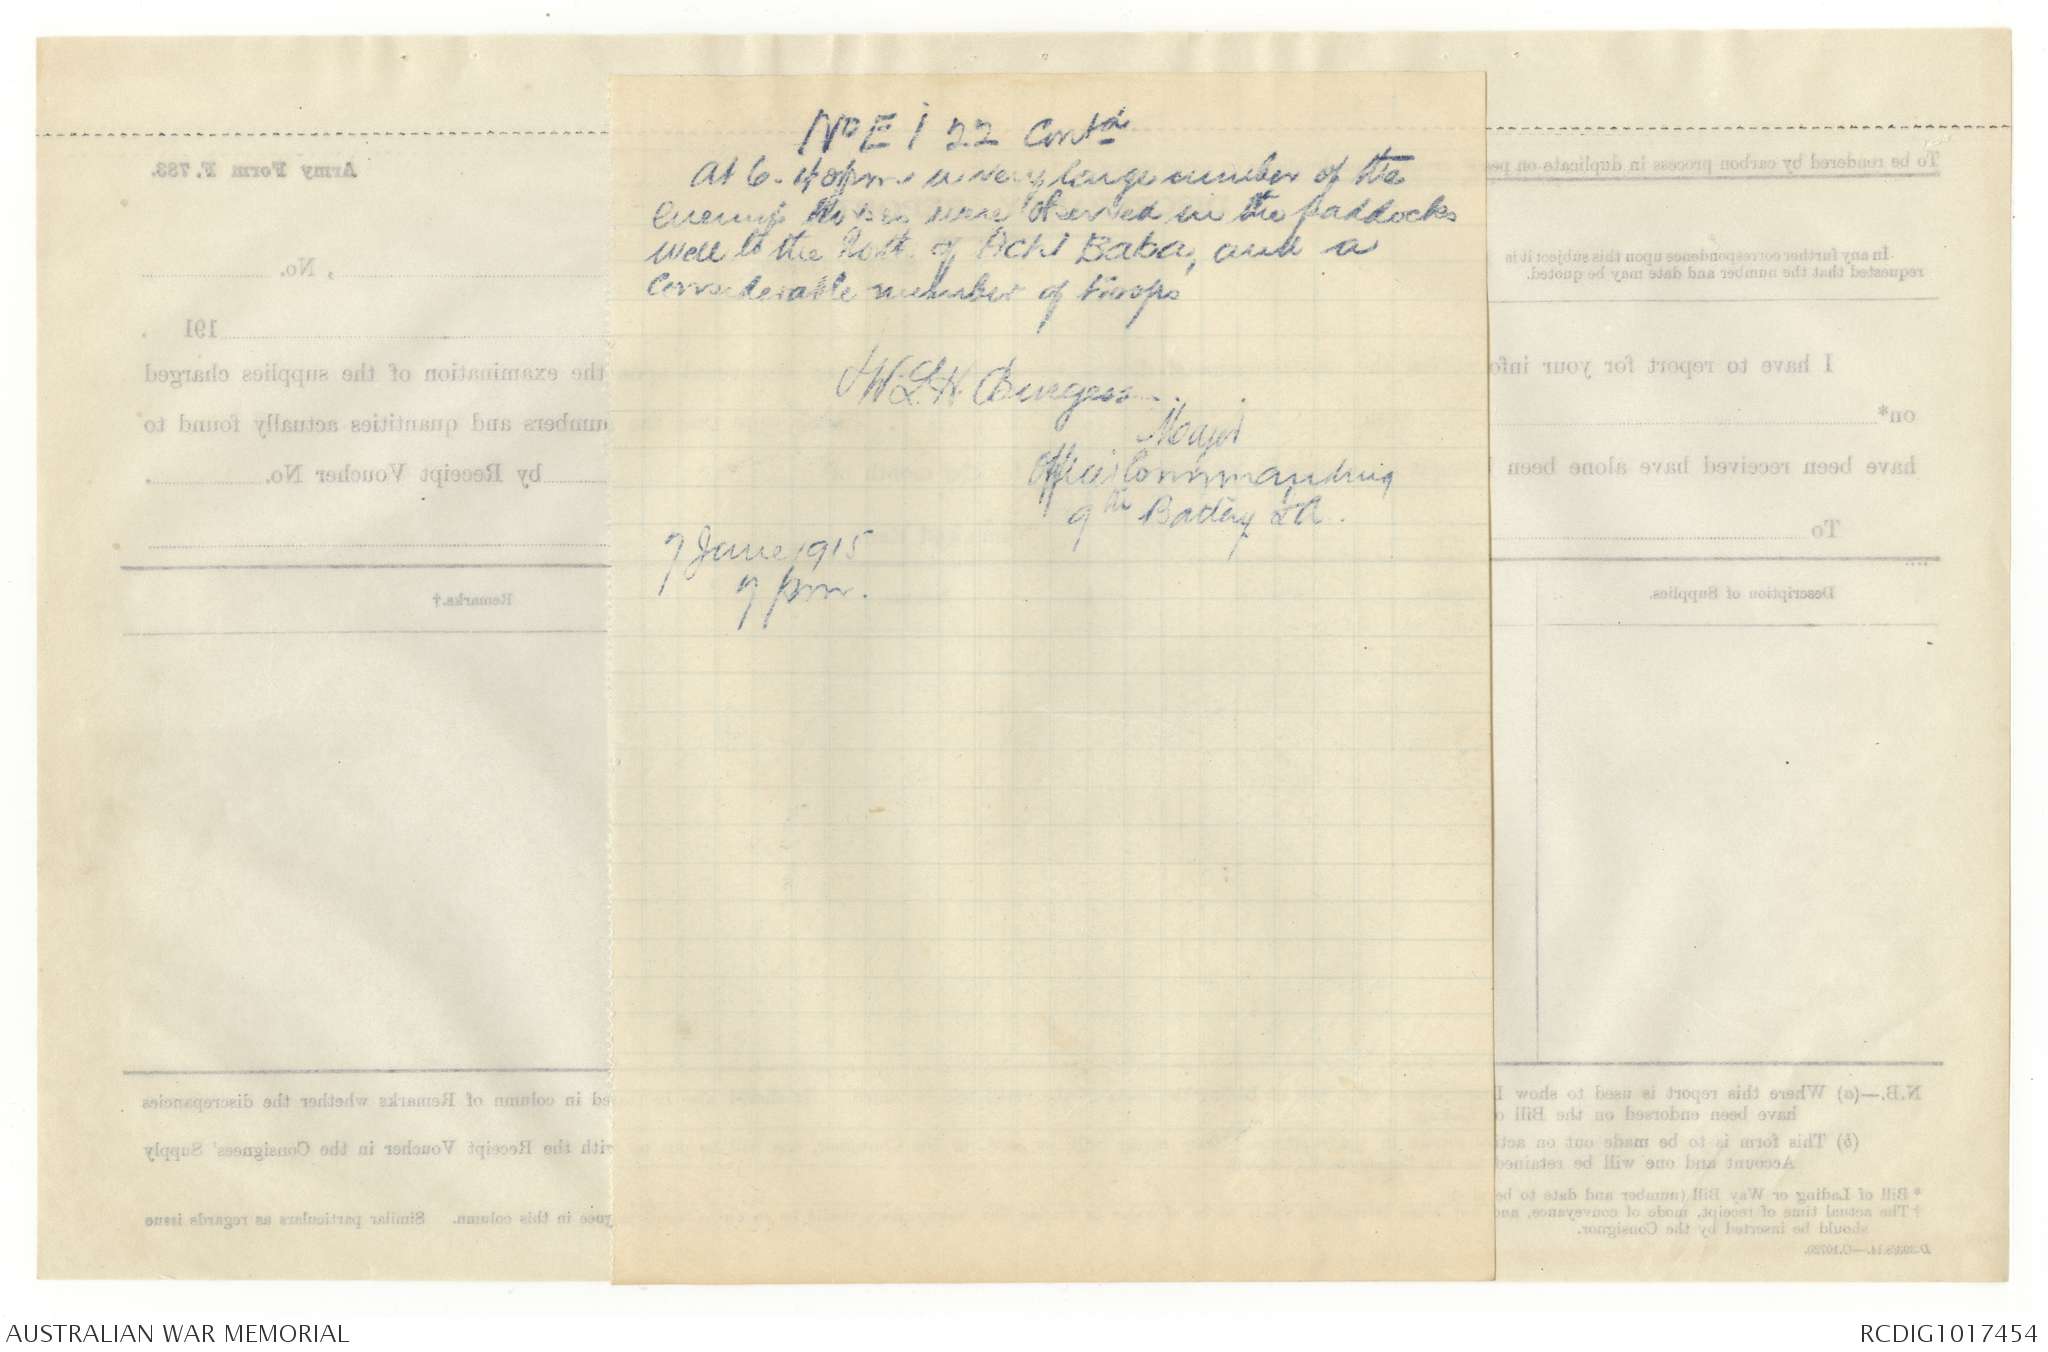 No E i 22 Contd
At 6.40 pm a very large number of the
Enemy's Horses were Observed in the paddocks
well to the North of Achi Baba, and a
Considerable number of troops
W L. H. Burgess
Major
Officer Commanding
9th Battery
7 June 1915
7 pm.
Army Form F. 783.
To be rendered by carbon process in duplicate on
, No.
In any further correspondence upon this subject it is
requested that the number and date may be quoted.
191 .
I have to report for your
the examination of the supplies charged
on*
numbers and quantities actually found to
have been received have alone been
by Receipt Voucher No. .
To
Remarks.†
Description of Supplies.
N.B.—(a) Where this report is used to show
in column of Remarks whether the discrepancies
have been endorsed on the Bill
(b) This form is to be made out on
with the Receipt Voucher in the Consignees' Supply
Account and one will be retained
* Bill of Lading or Way Bill (number and date to be
† The actual time of receipt, mode of conveyance,
in this column. Similar particulars as regards issue
should be inserted by the Consignor.
AUSTRALIAN WAR MEMORIAL
RCDIG1017454